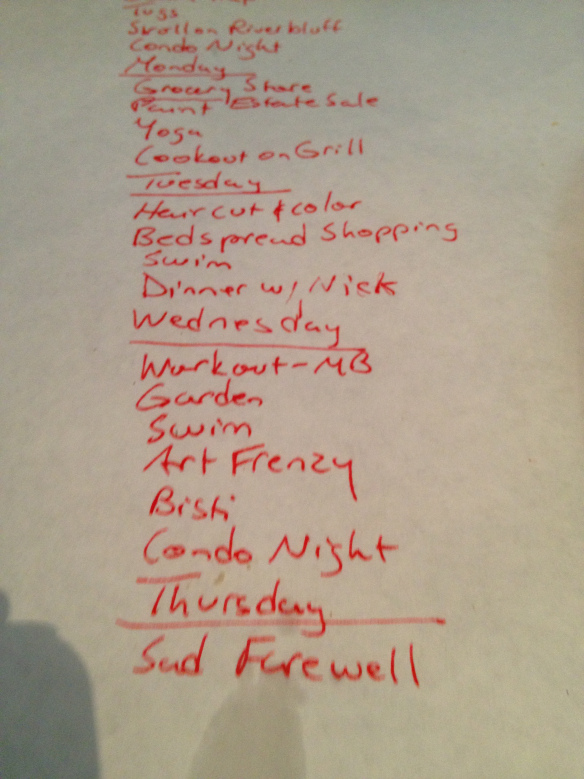 Tugs
Stroll on Riverbluff
Condo Night
Monday
Grocery Store
Paint Estate Sale
Yoga
Cookout on Grill
Tuesday
Haircut & color
Bedspread Shopping
Swim
Dinner w/ Nick
Wednesday
Workout-MB
Garden
Swim
Art Frenzy
Bisti
Condo Night
Thursday
Sad Farewell